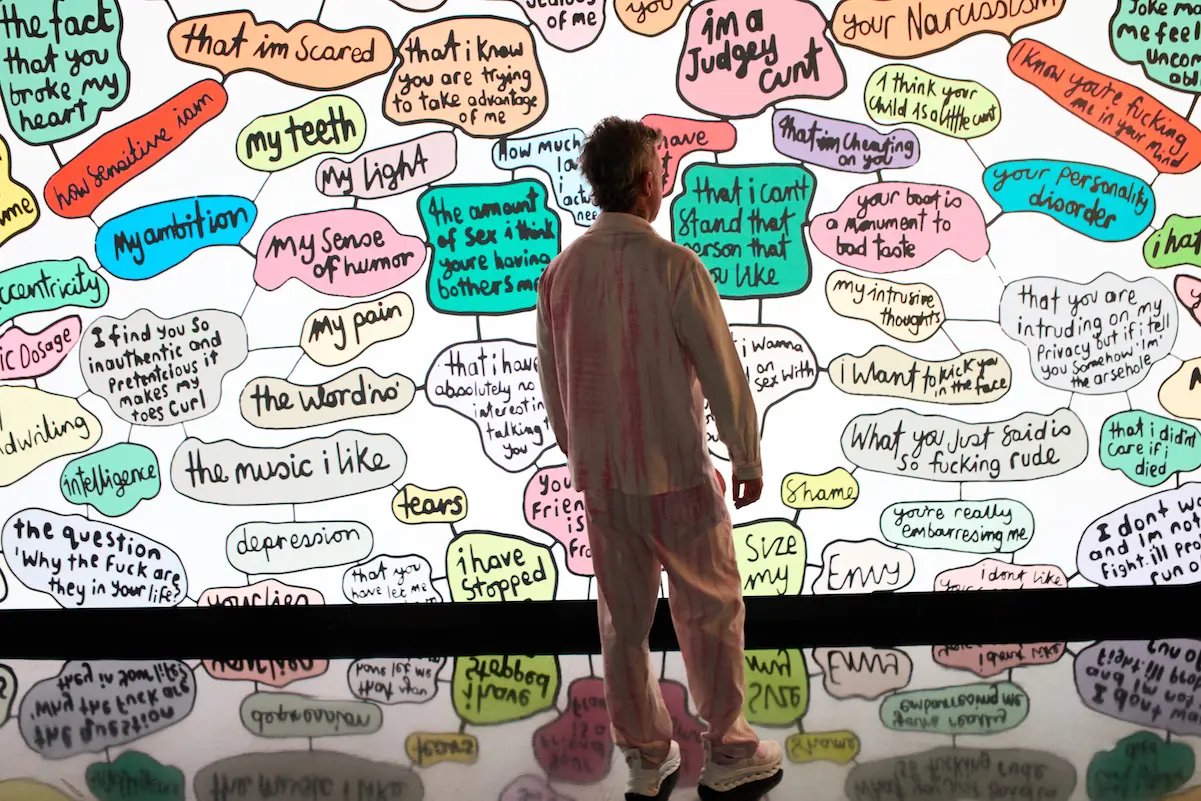 the fact
that you
broke my
heart
that im scared
that i know
you are trying
to take advantage
of me
of me
you
im a
Judgey
cunt
your Narcissism
Joke
me feel
I know you're fucking
me in your mind
how sensitive iam
my teeth
My light
How much
have
that im cheating
on you
I think your
child is a little cunt
your Personality
disorder
i hat
me
My ambition
my sense
of humor
the amount
of sex i think
youre having
bothers me
that i can't
stand that
person that
you like
your boat is
a monument to
bad taste
my intrusive
thoughts
that you are
intruding on my
Privacy but if i tell
you somehow 'Im'
the arsehole
ccentricity
ic Dosage
I find you so
inauthentic and
pretencious it
makes my
toes curl
my pain
the word 'no'
that i have
absolutely no
interest in
talking
you
i wanna
sex with
i want to kick you
in the face
dwriting
intelligence
the music i like
What you just said is
so fucking rude
that i didn't
care if i
died
tears
Shame
the question
'Why the fuck are
they in your life?
depression
that you
have let me
i have
stopped
Friend
is
Size
my
Envy
you're really
embarresing me
i dont like
I don't
and im not
fight. ill
run
your lies